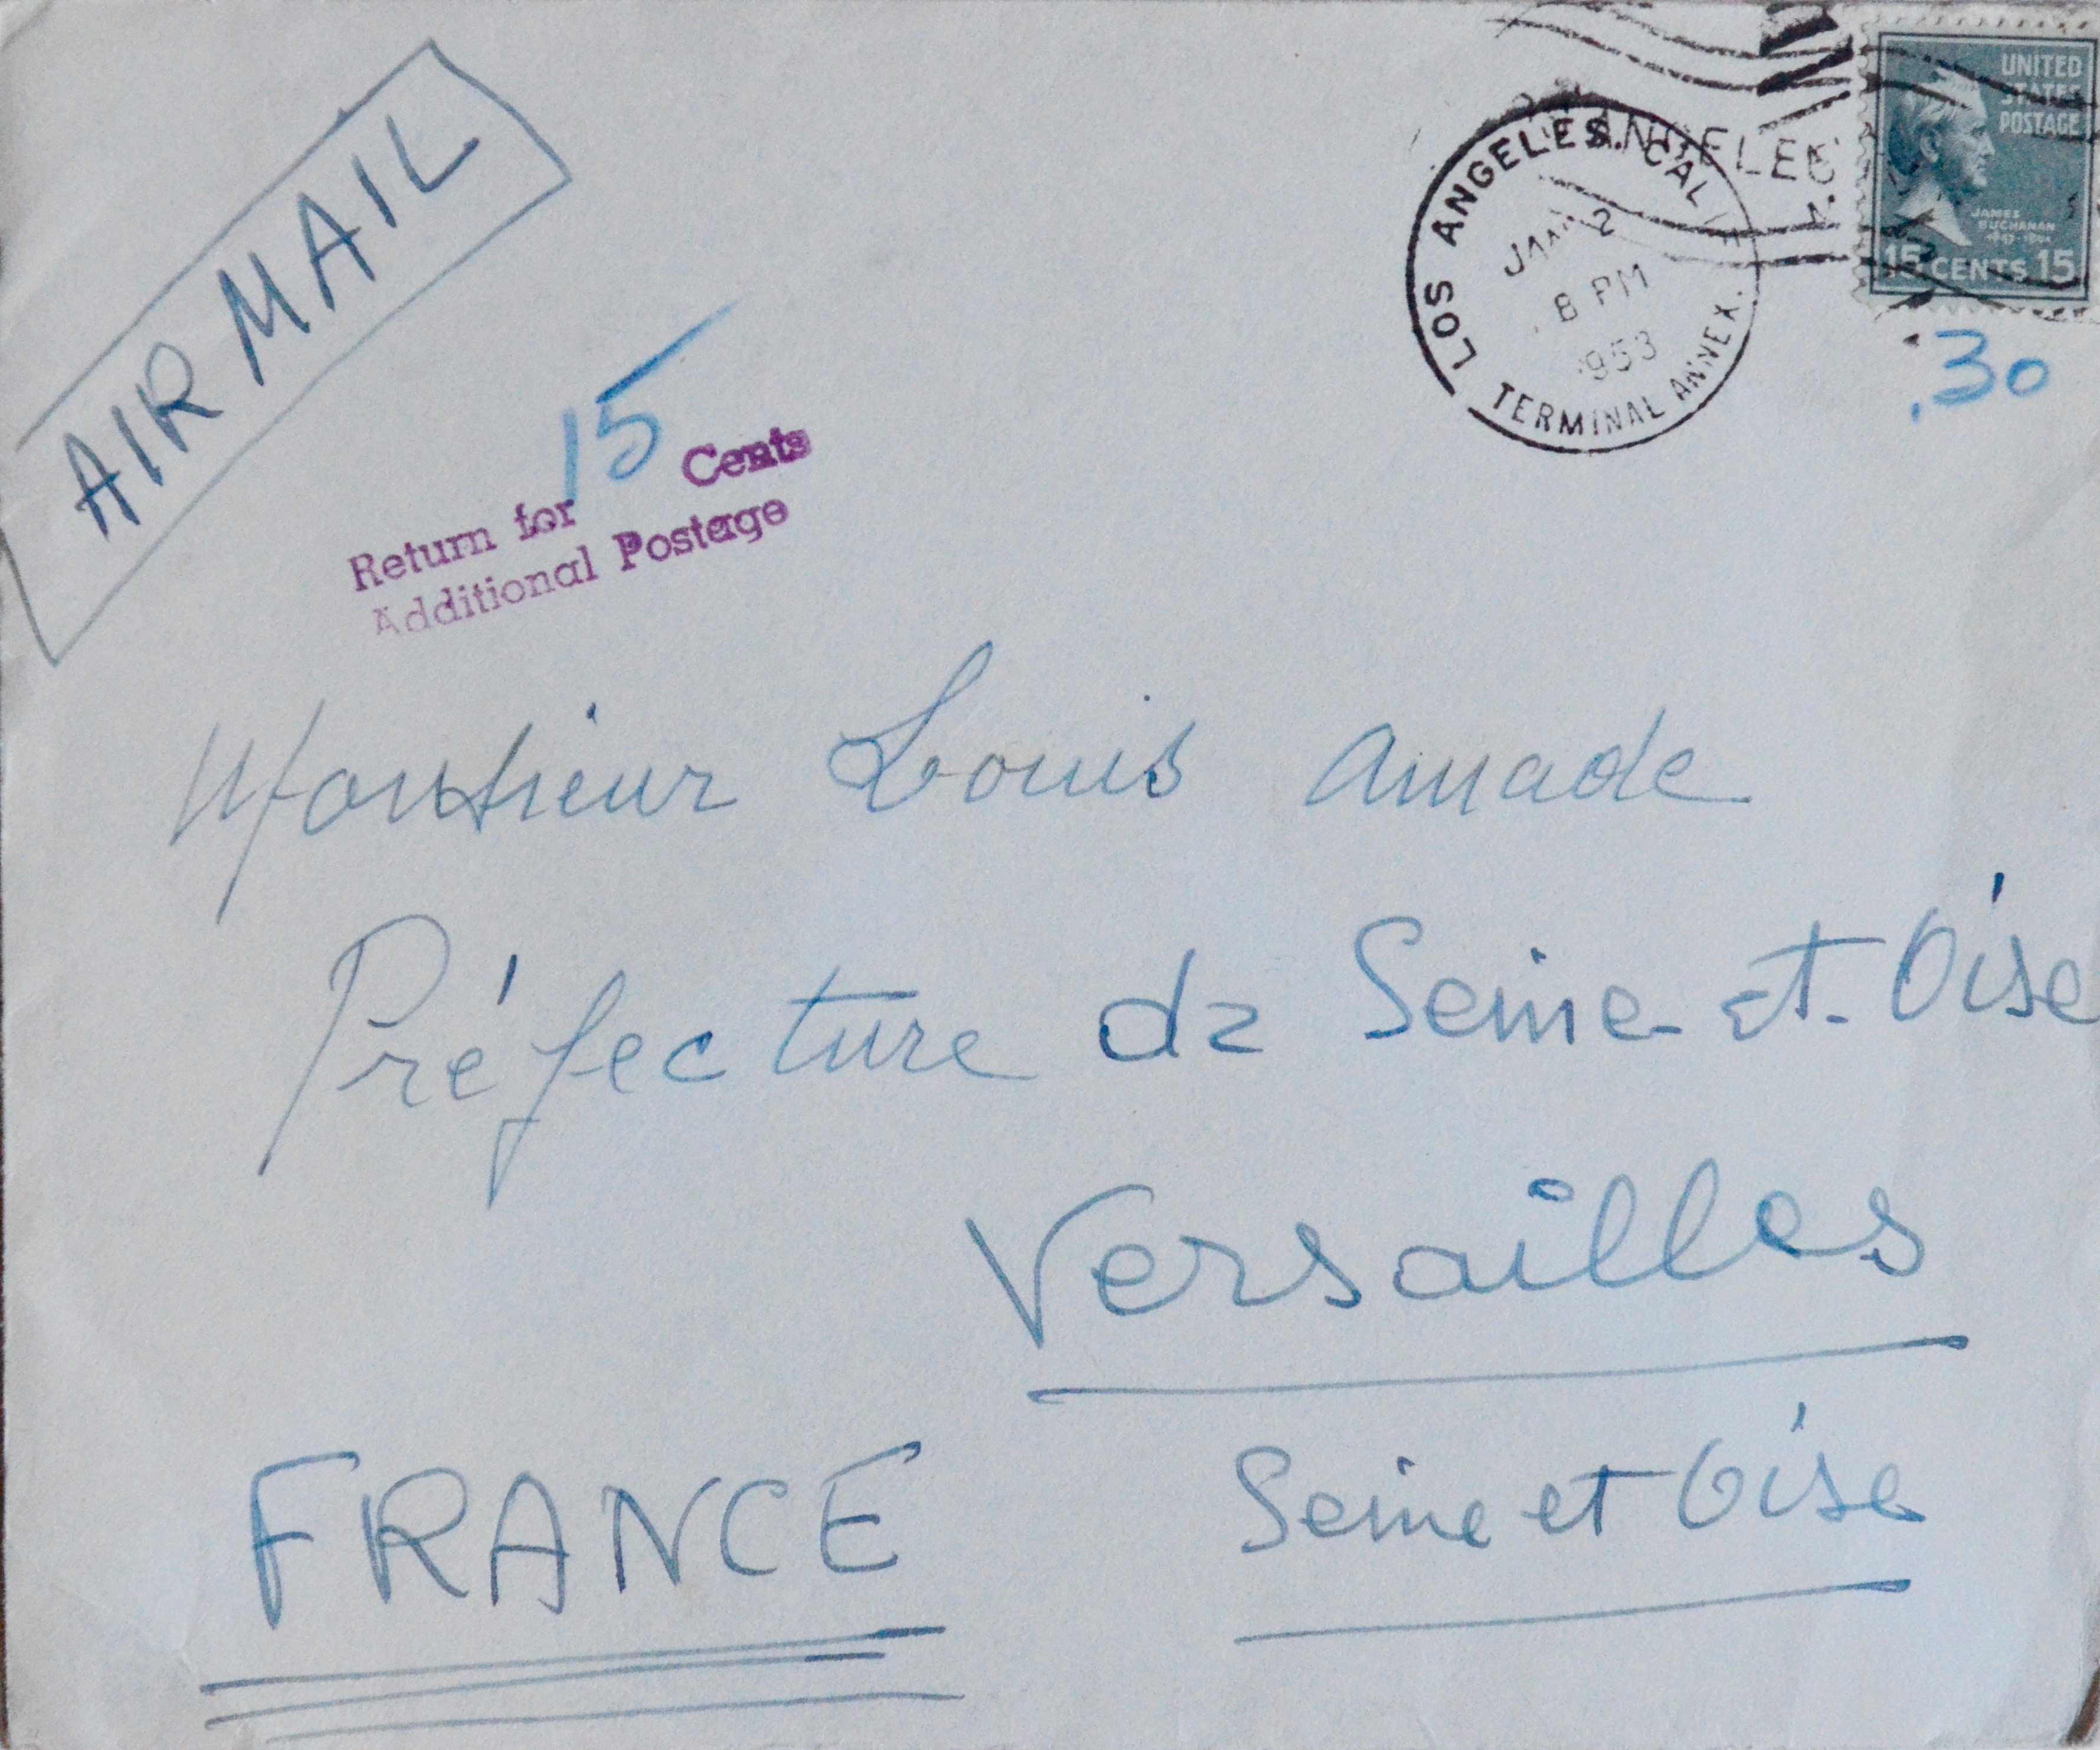 AIR MAIL
LOS ANGELES. CALIF.
JAN 2
8 PM
1953
TERMINAL ANNEX.
UNITED
STATES
POSTAGE
JAMES
BUCHANAN
1857-1861
15 CENTS 15
.30
Return for 15 Cents
Additional Postage
Monsieur Louis Amade
Préfecture de Seine-et-Oise
Versailles
FRANCE Seine et Oise